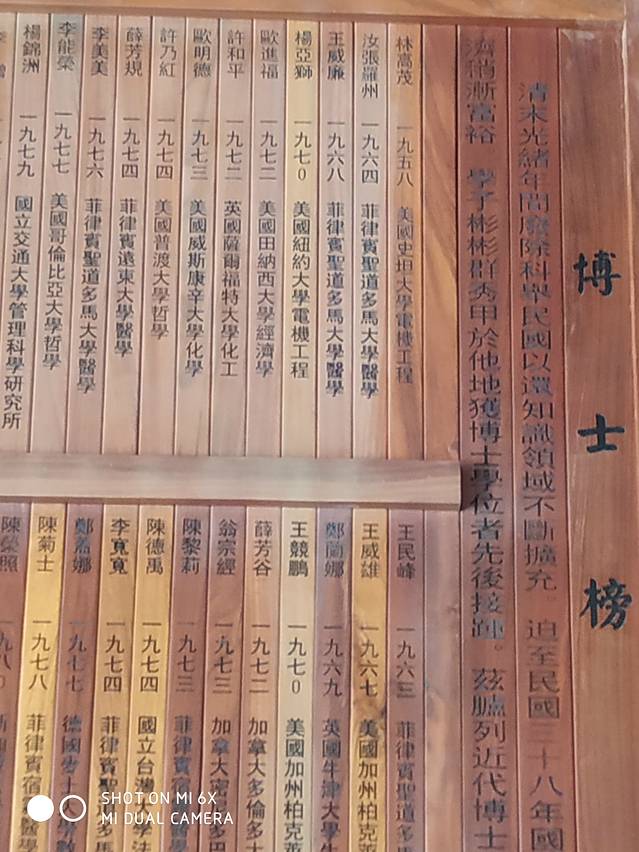 博士榜
清末光緒年間廢除科舉民國以還知識領域不斷擴充。迫至民國三十八年國
濟稍漸富裕 學子彬彬群秀甲於他地獲博士學位者先後接踵。茲臚列近代博士
林嵩茂 一九五八 美國史坦大學電機工程
汝張羅州 一九六四 菲律賓聖道多馬大學醫學
王威廉 一九六八 菲律賓聖道多馬大學醫學
楊亞獅 一九七0 美國紐約大學電機工程
歐進福 一九七二 美國田納西大學經濟學
許和平 一九七二 英國薩爾福特大學化工
歐明德 一九七三 美國威斯康辛大學化學
許乃紅 一九七四 美國普渡大學哲學
薛芳規 一九七四 菲律賓遠東大學醫學
李美美 一九七六 菲律賓聖道多馬大學醫學
李能榮 一九七七 美國哥倫比亞大學哲學
楊錦洲 一九七九 國立交通大學管理科學研究所
王民峰 一九六三 菲律賓聖道多
王威雄 一九六七 美國加州柏克萊
鄭蘭娜 一九六九 英國牛津大學
王競鵬 一九七0 美國加州柏克萊
薛芳谷 一九七二 加拿大多倫多大
翁宗經 一九七三 加拿大
陳黎莉 一九七三 菲律賓
陳德禹 一九七四 國立台灣大學法
李寬寬 一九七四 菲律賓聖道多馬
鄭嘉娜 一九七七 德國
陳菊士 一九七八 菲律賓
陳榮照 一九八0
SHOT ON MI 6X
MI DUAL CAMERA